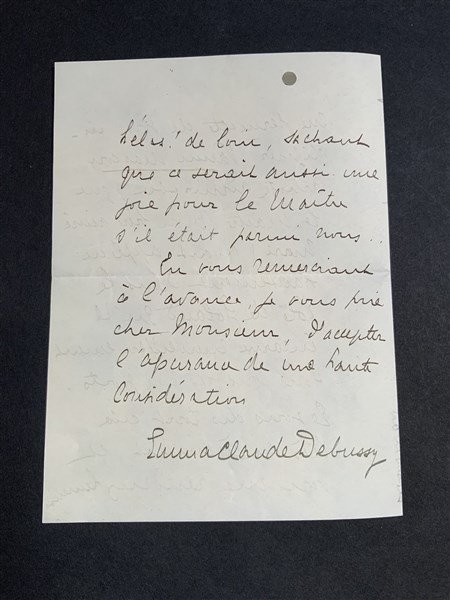 hélas! de loin, sachant
que ce serait aussi une
joie pour le Maître
s'il était parmi nous..
En vous remerciant
à l'avance, je vous prie
cher Monsieur, d'accepter
l'assurance de ma haute
Considération
Emma Claude Debussy